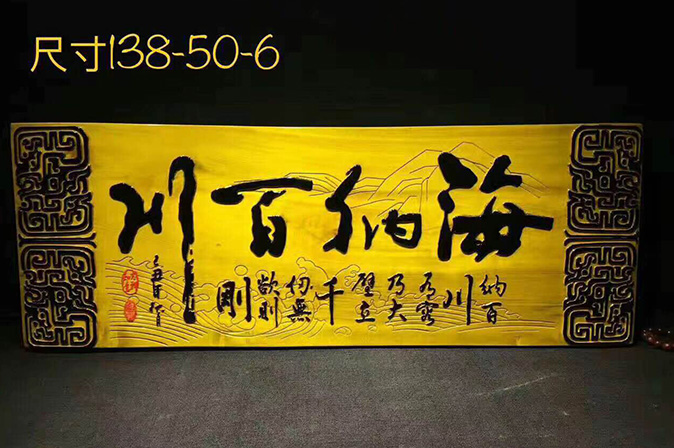 尺寸138-50-6
海纳百川
纳百
川
有容
乃大
壁立
千
仞無
欲則
剛